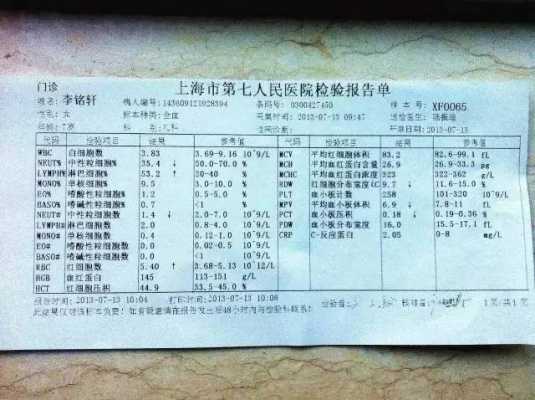 门诊 上海市第七人民医院检验报告单
姓名:李铭轩 病人编号:143609121028394 条码号:0300427450 样本号:XF0065
性别:女 标本种类:全血 采集时间:2013-07-13 09:47 送检医生:
年龄:7岁 科别:儿科 临床诊断: 开单日期:2013-07-13
代码 检验项目 结果 参考值 代码 检验项目 结果 参考值
WBC 白细胞数 3.83 3.69-9.16 10^9/L MCV 平均红细胞体积 83.2 82.6-99.1 fL
NEUT% 中性粒细胞% 35.4 ↓ 50.0-70.0 % MCH 平均血红蛋白量 26.9 26.9-33.3 pg
LYMPH% 淋巴细胞% 53.2 ↑ 20-40 % MCHC 平均血红蛋白浓度 323 322-362 g/L
MONO% 单核细胞% 9.5 3.0-10.0 % RDW 红细胞分布宽度(C 9.7 ↓ 11.6-15.0 %
EO% 嗜酸性粒细胞% 1.2 0.5-5.0 % PLT 血小板计数 258 101-320 10^9/L
BASO% 嗜碱性粒细胞% 0.7 <1 % MPV 平均血小板体积 6.9 ↓ 7.8-11 fL
NEUT# 中性粒细胞数 1.4 ↓ 2.0-7.0 10^9/L PCT 血小板压积 0.18 ↓ 0.19-0.36 %
LYMPH# 淋巴细胞数 2.0 0.8-4.0 10^9/L PDW 血小板分布宽度 16.0 15.5-17.1 fL
MONO# 单核细胞数 0.4 0.12-1.0 10^9/L CRP C-反应蛋白 2.05 0-8 mg/L
EO# 嗜酸性粒细胞数 0.0 0.02-0.5 10^9/L
BASO# 嗜碱性粒细胞数 0.0 <1 10^9/L
RBC 红细胞数 5.40 ↑ 3.68-5.13 10^12/L
HGB 血红蛋白 145 113-151 g/L
HCT 红细胞压积 44.9 33.5-45.0 %
报告时间:2013-07-13 10:04 打印时间:2013-07-13 10:08 检验者: 核对者: 1页/共1页
此结果仅对该标本负责!如有疑难请在报告发出后48小时内与检验科联系!